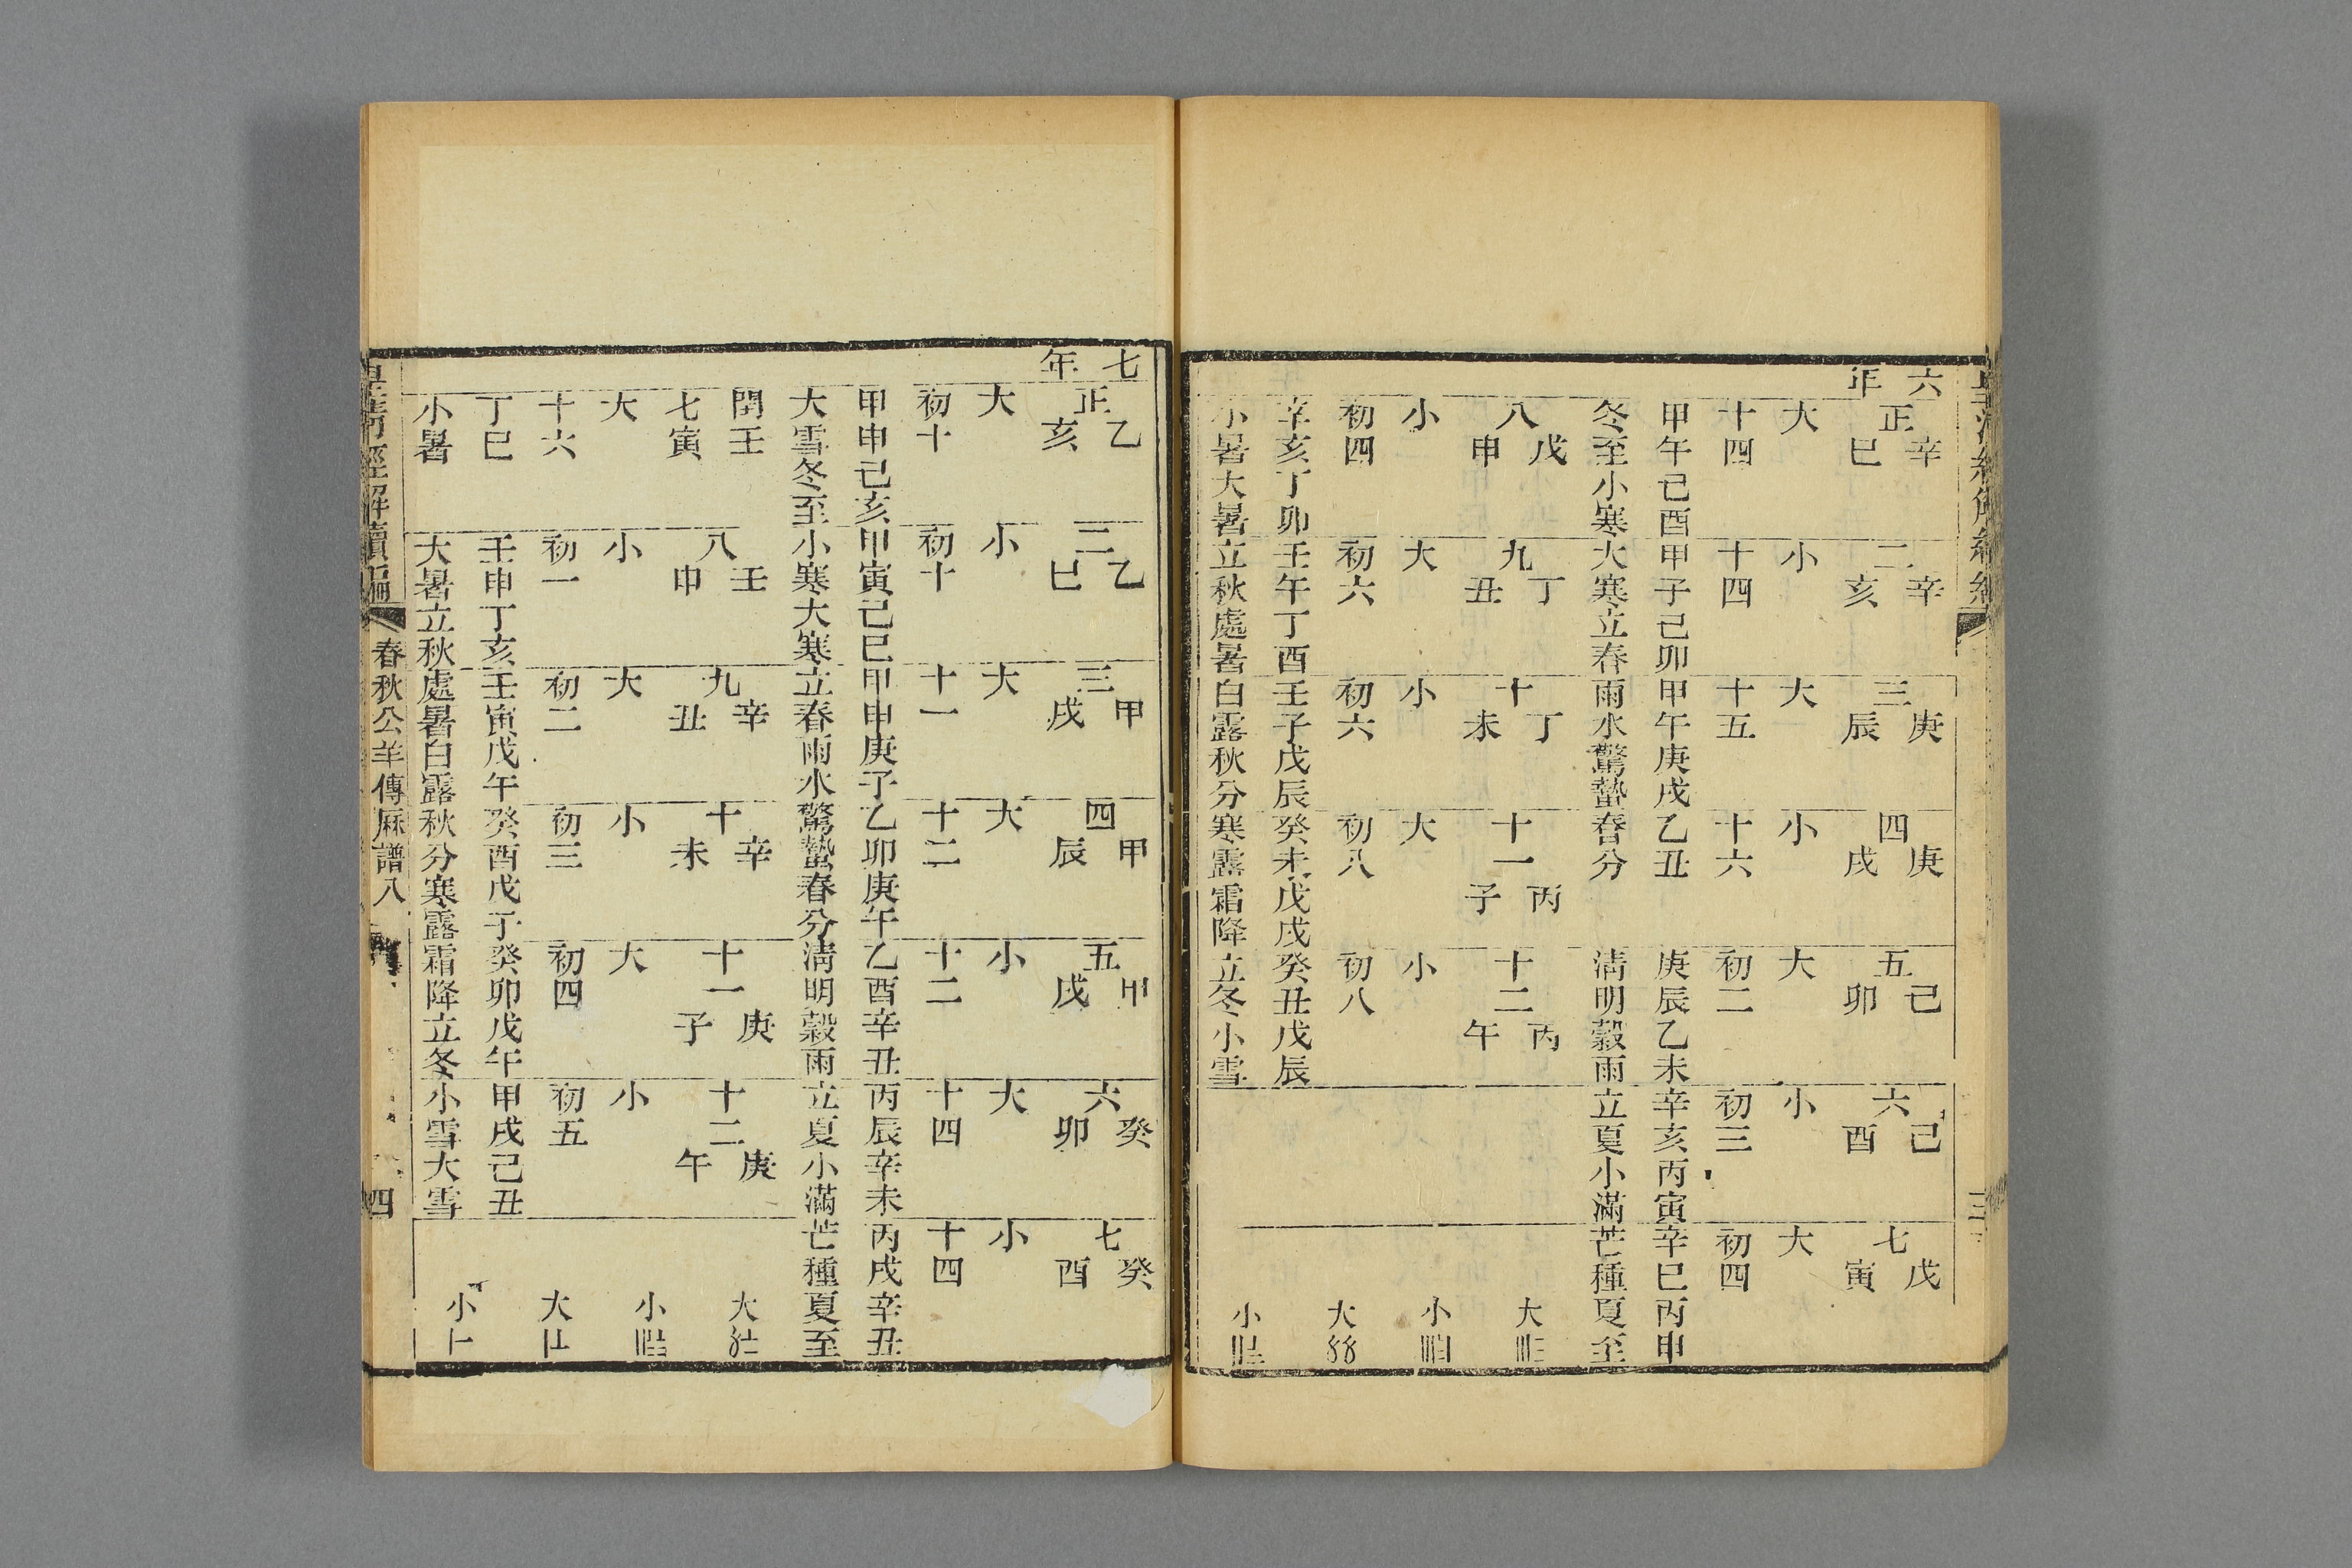 六年 正辛巳 二辛亥 三庚辰 四庚戌 五己卯 六己酉 七戊寅
大 小 大 小 大 小 大
十四 十四 十五 十六 初二 初三 初四
甲午己酉 甲子己卯 甲午庚戌 乙丑 庚辰乙未 辛亥丙寅 辛巳丙申
冬至小寒 大寒立春 雨水驚蟄 春分 清明穀雨 立夏小滿 芒種夏至
八戊申 九丁丑 十丁未 十一丙子 十二丙午 大
小 大 小 大 小 小
初四 初六 初六 初八 初八 大
辛亥丁卯 壬午丁酉 壬子戊辰 癸未戊戌 癸丑戊辰
小暑大暑 立秋處暑 白露秋分 寒露霜降 立冬小雪 小
七年 正乙亥 二乙巳 三甲戌 四甲辰 五甲戌 六癸卯 七癸酉
大 小 大 大 小 大 小
初十 初十 十一 十二 十二 十四 十四
甲申己亥 甲寅己巳 甲申庚子 乙卯庚午 乙酉辛丑 丙辰辛未 丙戌辛丑
大雪冬至 小寒大寒 立春雨水 驚蟄春分 清明穀雨 立夏小滿 芒種夏至
閏七壬寅 八壬申 九辛丑 十辛未 十一庚子 十二庚午 大
大 小 大 小 大 小 小
十六 初一 初二 初三 初四 初五 大
丁巳 壬申丁亥 壬寅戊午 癸酉戊子 癸卯戊午 甲戌己丑
小暑 大暑立秋 處暑白露 秋分寒露 霜降立冬 小雪大雪 小
皇清經解續編 春秋公羊傳厤譜八 四